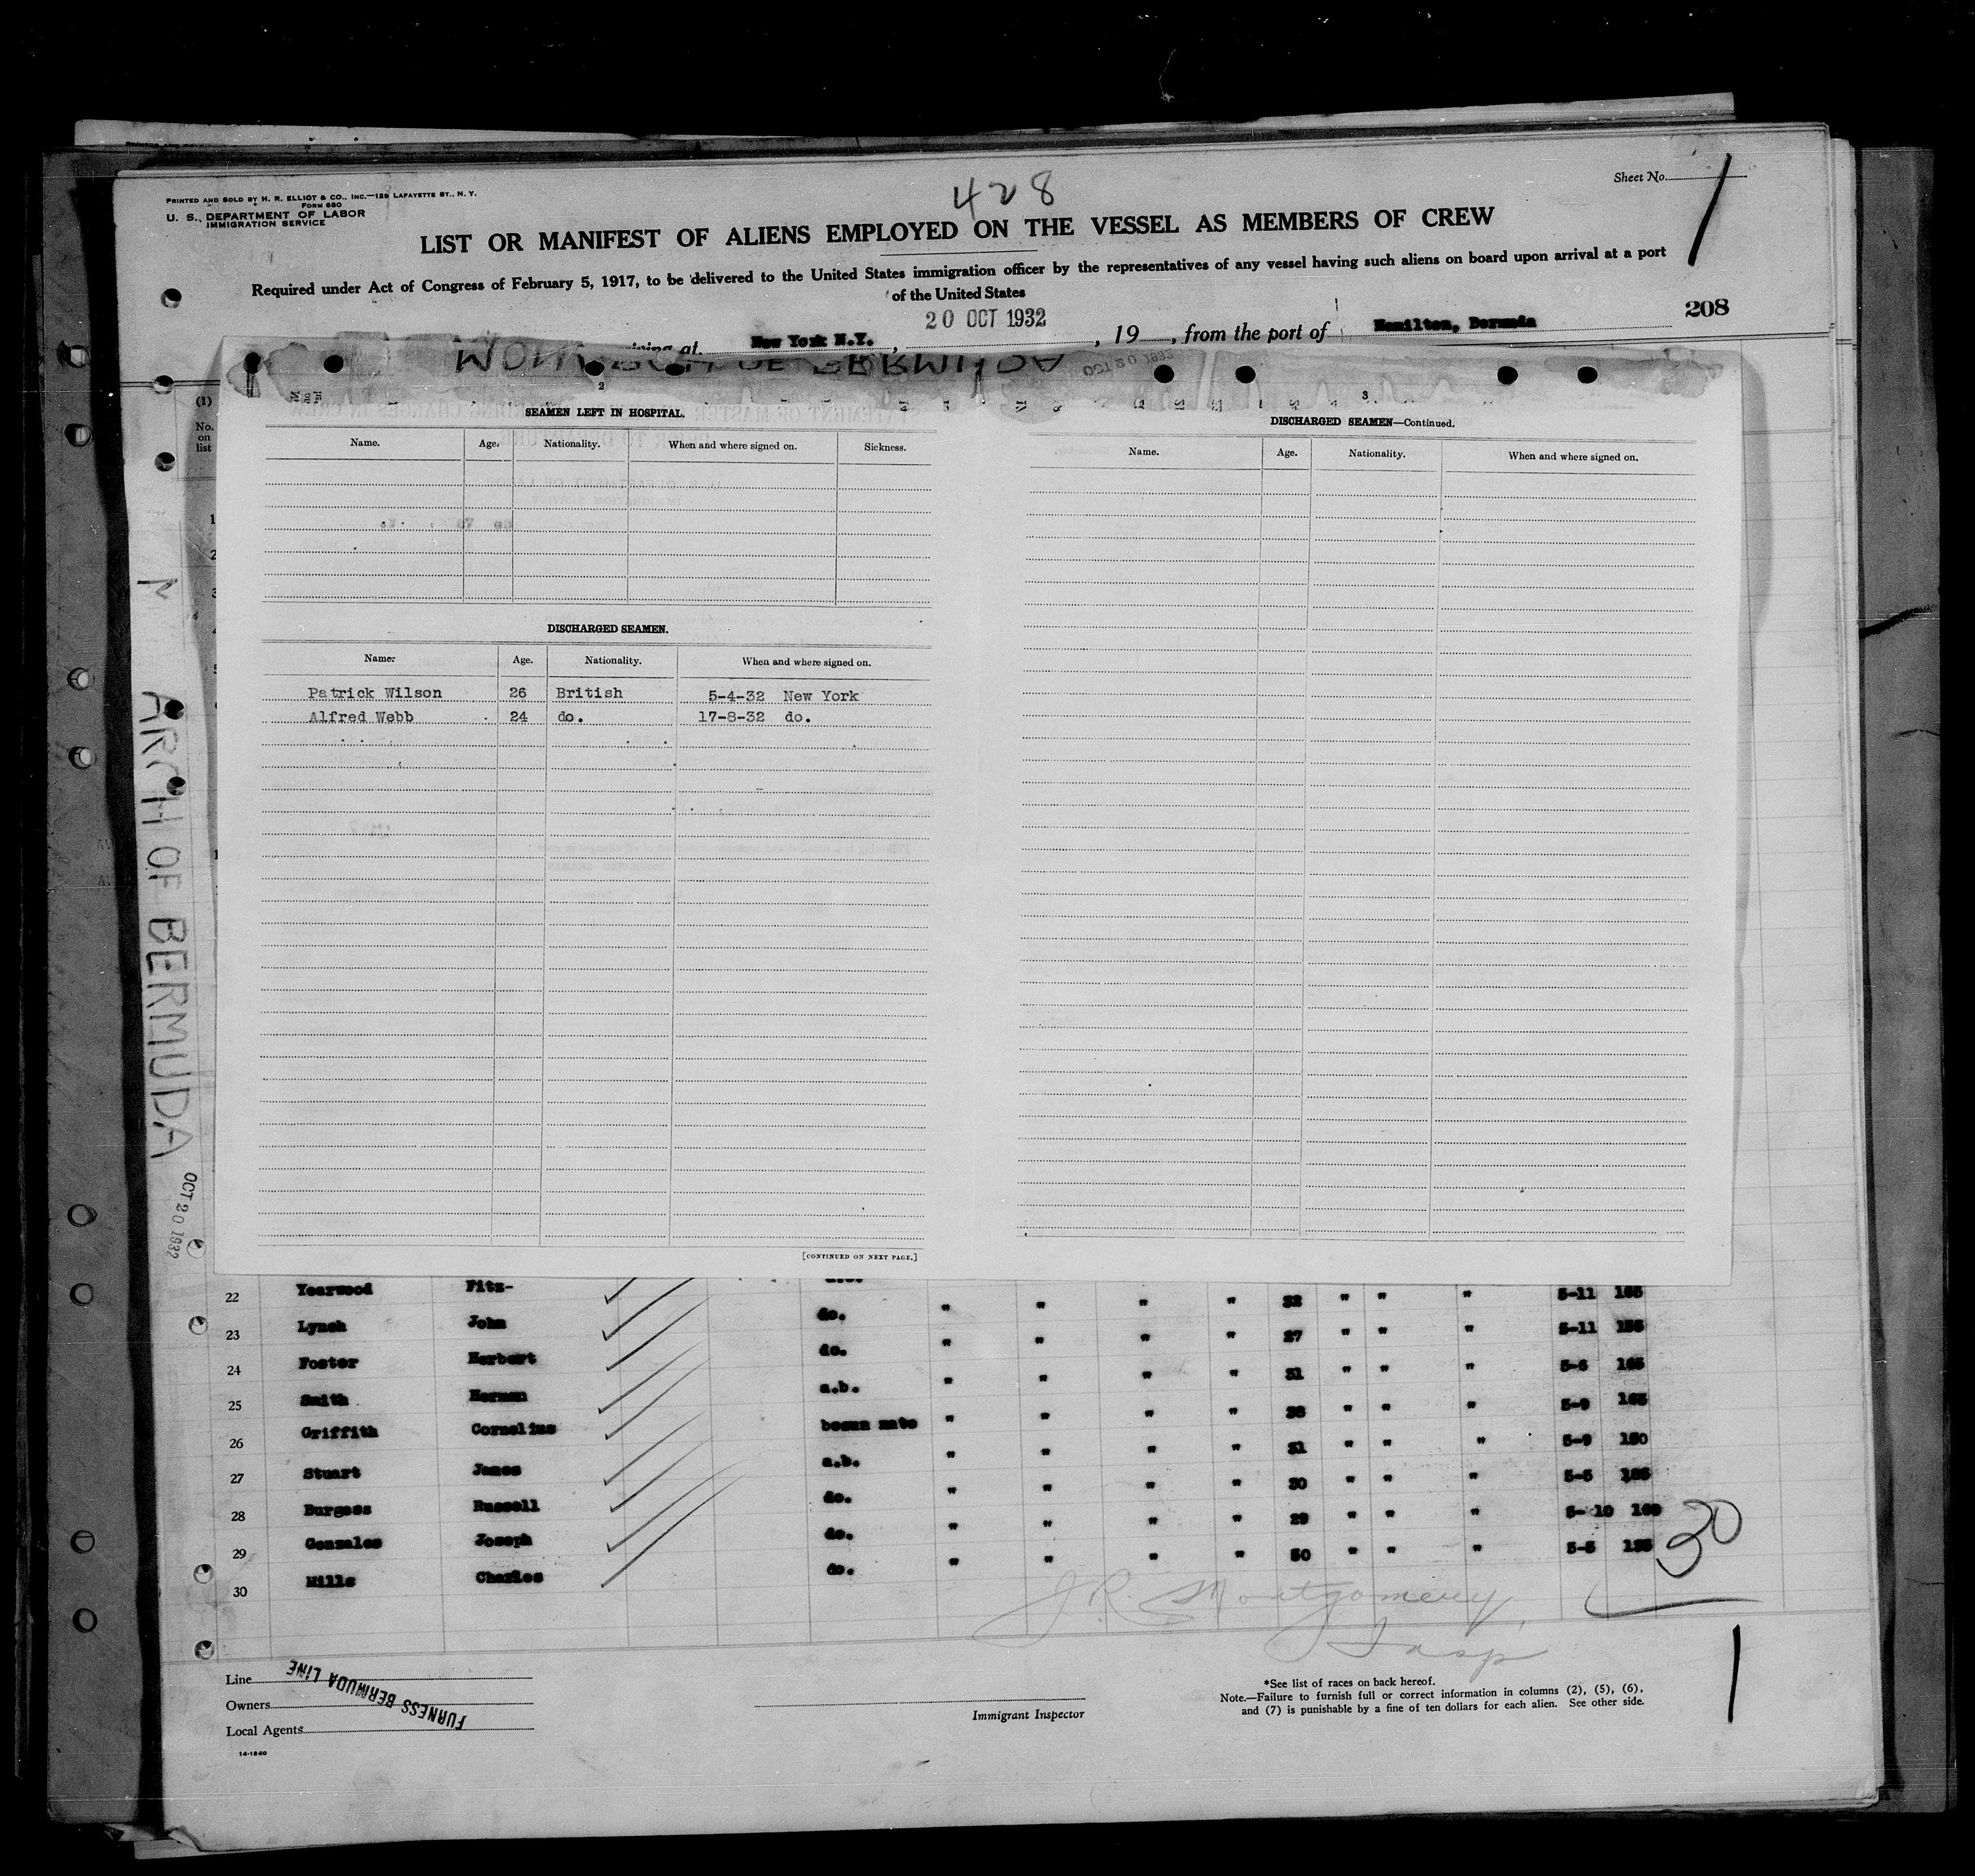 428
Sheet No.
PRINTED AND SOLD BY H. R. ELLIOT & CO., INC.—129 LAFAYETTE ST., N. Y.
FORM 680
U. S. DEPARTMENT OF LABOR
IMMIGRATION SERVICE
LIST OR MANIFEST OF ALIENS EMPLOYED ON THE VESSEL AS MEMBERS OF CREW
Required under Act of Congress of February 5, 1917, to be delivered to the United States immigration officer by the representatives of any vessel having such aliens on board upon arrival at a port
of the United States
at New York N.Y., 20 OCT 1932, 19 , from the port of Hamilton, Bermuda 208
OCT 20 1932
(1)
No. on list
2
SEAMEN LEFT IN HOSPITAL.
Name. Age. Nationality. When and where signed on. Sickness.
DISCHARGED SEAMEN.
Name. Age. Nationality. When and where signed on.
Patrick Wilson 26 British 5-4-32 New York
Alfred Webb 24 do. 17-8-32 do.
[CONTINUED ON NEXT PAGE.]
3
DISCHARGED SEAMEN—Continued.
Name. Age. Nationality. When and where signed on.
ARCH OF BERMUDA
OCT 20 1932
22 Yearwood Fitz-
" " " " 32 " " " 5-11 165
23 Lynch John do.
" " " " 27 " " " 5-11
24 Foster Herbert do.
" " " " 31 " " " 5-6 165
25 Smith Herman a.b.
" " " " " " " 5-9 165
26 Griffith Cornelius bosun mate
" " " " 31 " " " 5-9 150
27 Stuart James a.b.
" " " " 30 " " " 5-5
28 Burgess Russell do.
" " " " 29 " " " 5-10
29 Gonzales Joseph do.
" " " " 50 " " " 5-5
30 Mills Charles do.
30
J.R. Montgomery
Insp
Line
Owners
Local Agents
FURNESS BERMUDA LINE
14-1240
Immigrant Inspector
*See list of races on back hereof.
Note.—Failure to furnish full or correct information in columns (2), (5), (6),
and (7) is punishable by a fine of ten dollars for each alien. See other side.